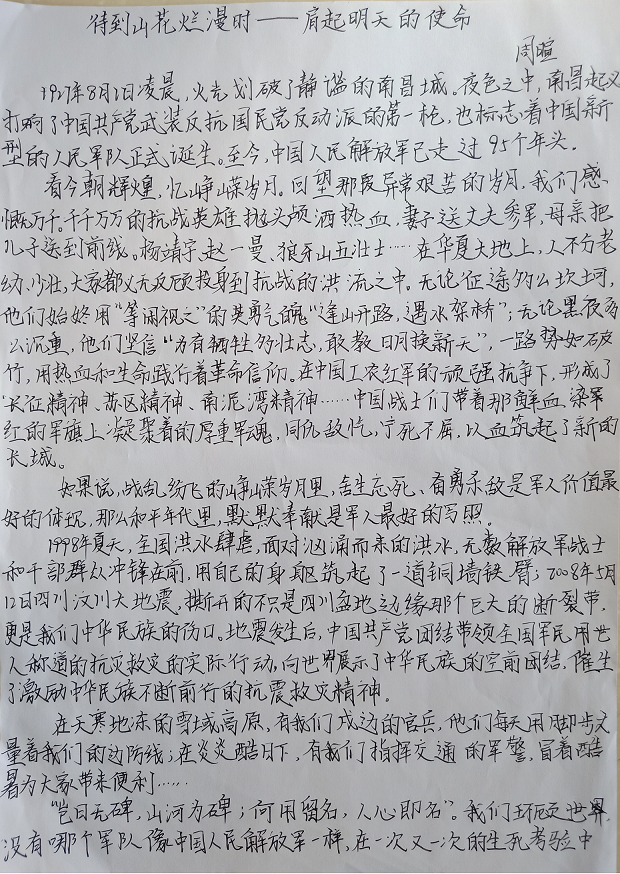 待到山花烂漫时——肩起明天的使命
周暄
1927年8月1日凌晨，火光划破了静谧的南昌城。夜色之中，南昌起义
打响了中国共产党武装反抗国民党反动派的第一枪，也标志着中国新
型的人民军队正式诞生。至今，中国人民解放军已走过95个年头。
看今朝辉煌，忆峥嵘岁月。回望那段异常艰苦的岁月，我们感
慨万千。千千万万的抗战英雄抛头颅洒热血，妻子送丈夫参军，母亲把
儿子送到前线。杨靖宇、赵一曼、狼牙山五壮士……在华夏大地上，人不分老
幼、少壮，大家都义无反顾投身到抗战的洪流之中。无论征途多么坎坷，
他们始终用“等闲视之”的英勇气魄“逢山开路，遇水架桥”；无论黑夜多
么沉重，他们坚信“为有牺牲多壮志，敢教日月换新天”，一路势如破
竹，用热血和生命践行着革命信仰。在中国工农红军的顽强抗争下，形成了
长征精神、苏区精神、南泥湾精神……中国战士们带着那鲜血染
红的军旗上凝聚着的厚重军魂，同仇敌忾，宁死不屈，以血筑起了新的
长城。
如果说，战乱纷飞的峥嵘岁月里，舍生忘死、奋勇杀敌是军人价值最
好的体现，那么和平年代里，默默奉献是军人最好的写照。
1998年夏天，全国洪水肆虐，面对汹涌而来的洪水，无数解放军战士
和干部群众冲锋在前，用自己的身躯筑起了一道铜墙铁臂；2008年5月
12日四川汶川大地震，撕开的不只是四川盆地边缘那个巨大的断裂带，
更是我们中华民族的伤口。地震发生后，中国共产党团结带领全国军民用世
人称道的抗灾救灾的实际行动，向世界展示了中华民族的空前团结，催生
了激励中华民族不断前行的抗震救灾精神。
在天寒地冻的雪域高原，有我们戍边的官兵，他们每天用脚步丈
量着我们的边防线；在炎炎酷日下，有我们指挥交通的军警，冒着酷
暑为大家带来便利……
“岂曰无碑，山河为碑；何用留名，人心即名”。我们环顾世界，
没有哪个军队像中国人民解放军一样，在一次又一次的生死考验中